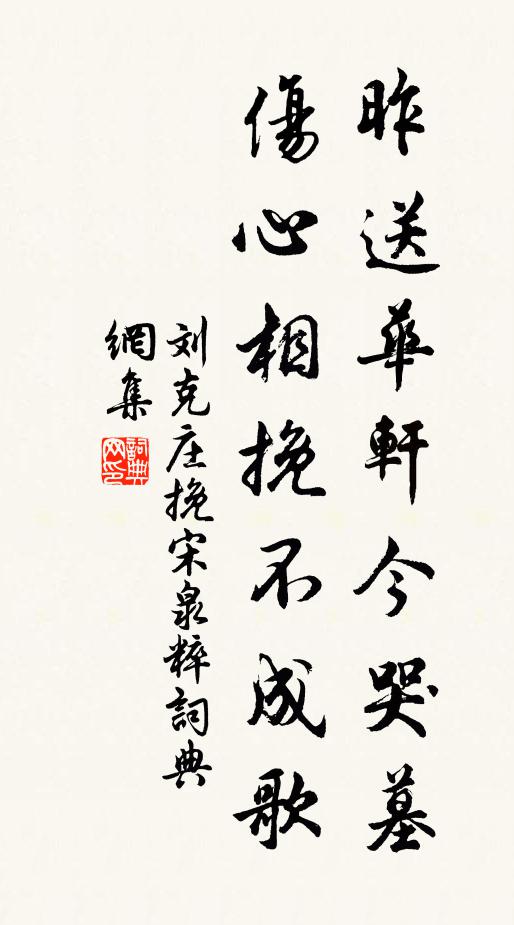 昨送華軒今哭墓
傷心相挽不成歌
刘克庄挽宋泉粹詞典
網集
詞典
网印